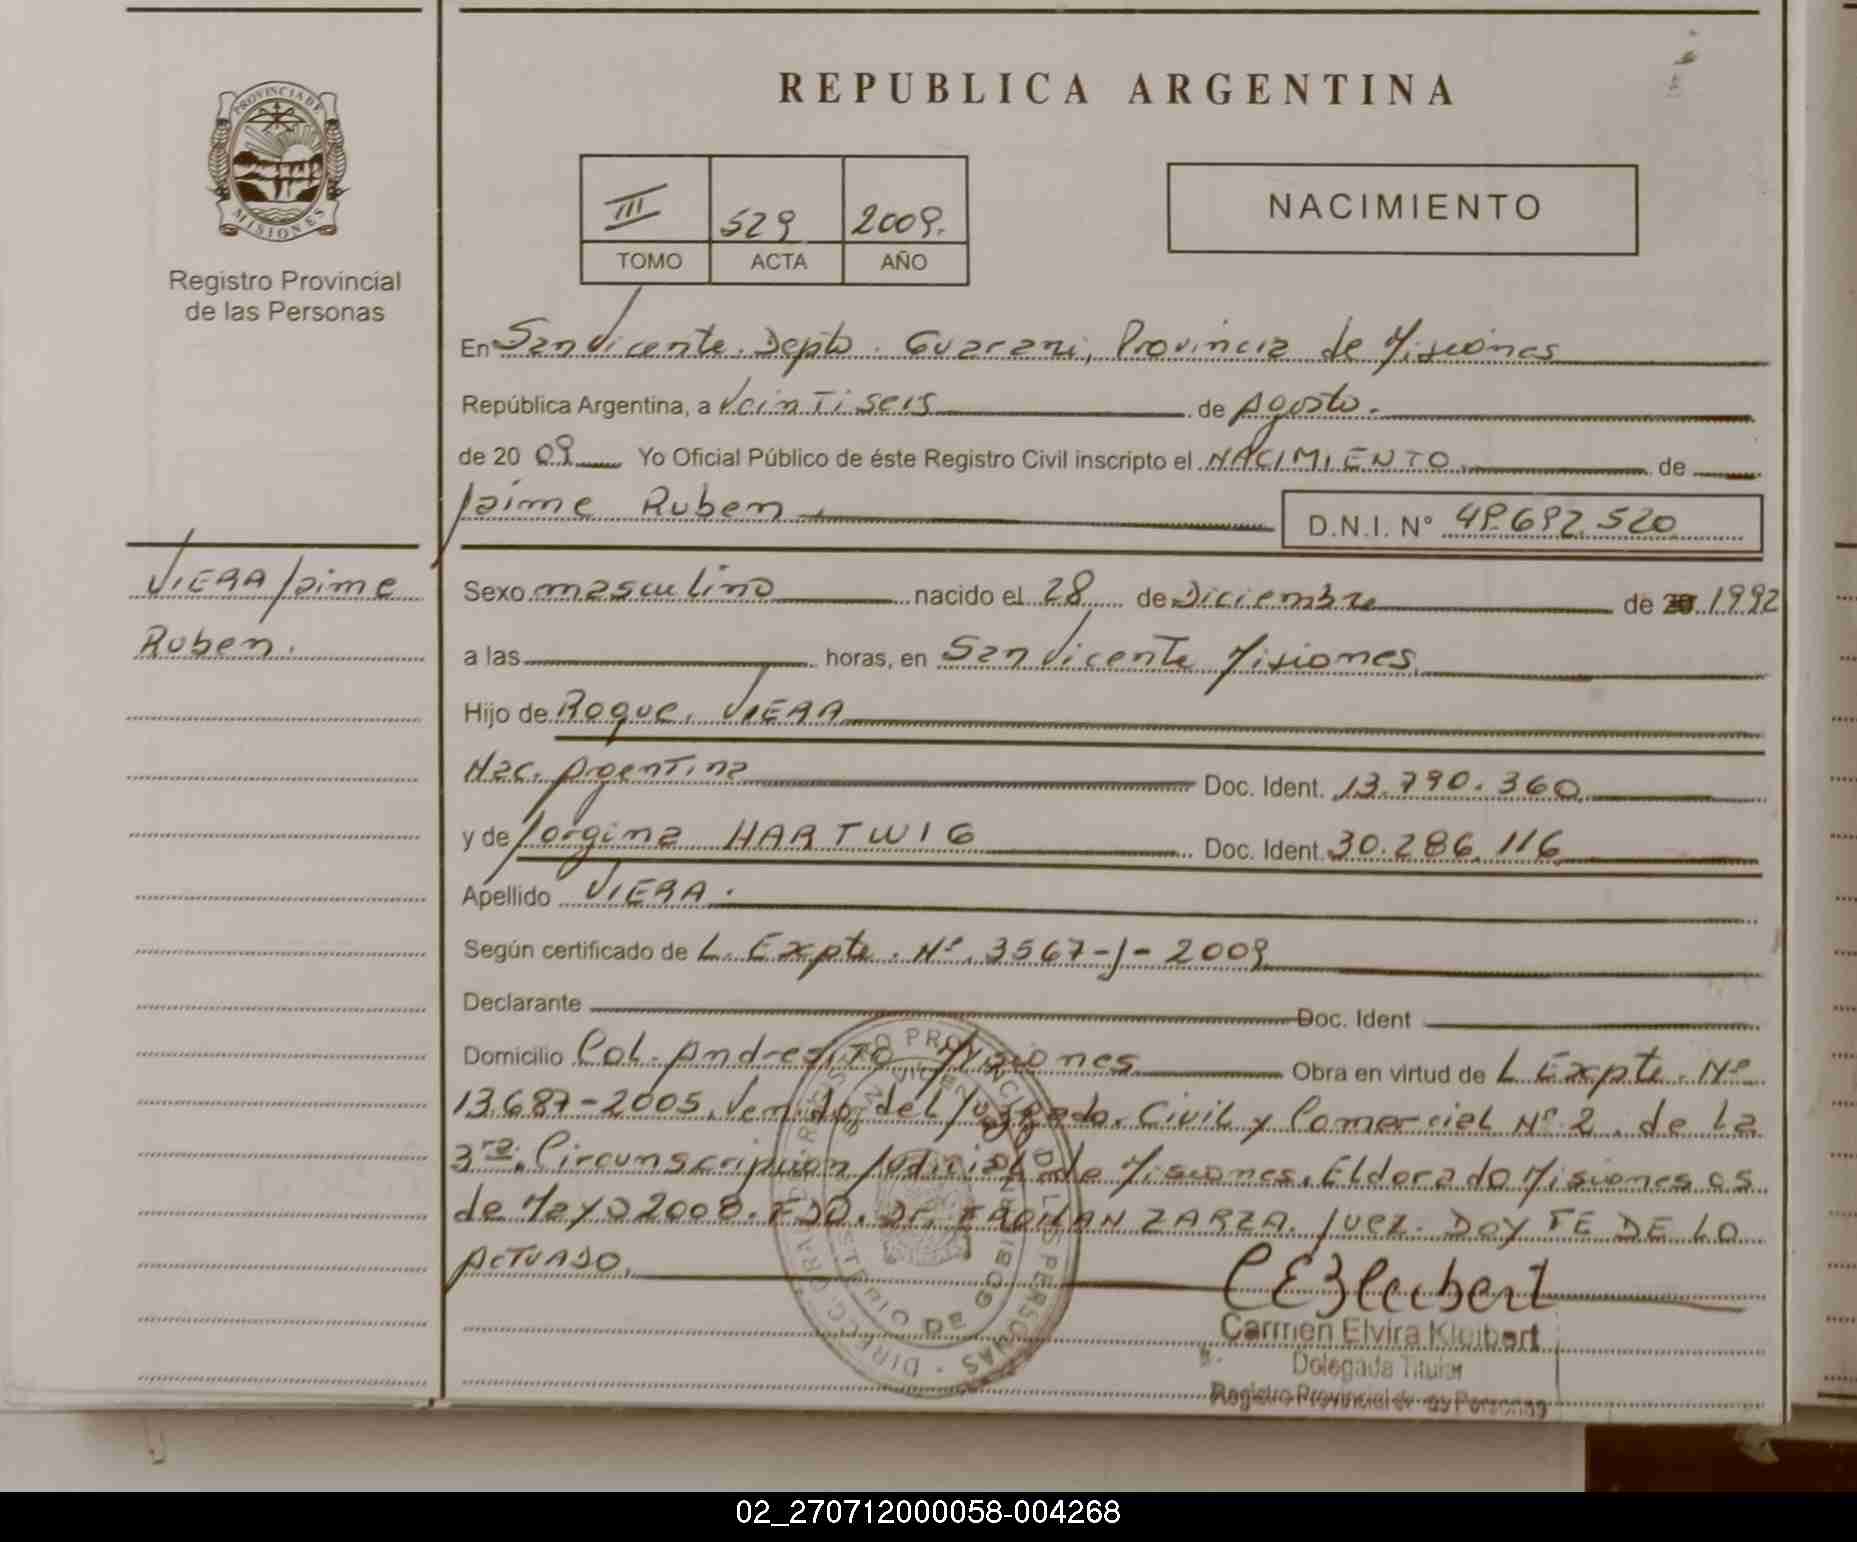 PROVINCIA DE
MISIONES
Registro Provincial
de las Personas
VIERA Jaime
Ruben.
REPUBLICA ARGENTINA
III 529 2009.
TOMO ACTA AÑO
NACIMIENTO
En San Vicente. Depto. Guarani, Provincia de Misiones
República Argentina, a Veintiseis de Agosto.
de 20 09 Yo Oficial Público de éste Registro Civil inscripto el NACIMIENTO de
Jaime Ruben D.N.I. Nº
Sexo masculino nacido el 28 de Diciembre de 1992
a las horas, en San Vicente Misiones.
Hijo de Roque. VIERA
Nac. Argentina Doc. Ident. 13.790.360
y de Jorgina HARTWIG Doc. Ident. 30.286.116
Apellido VIERA.
Según certificado de L. Expte. Nº. 3567-J-2009
Declarante Doc. Ident
Domicilio Col. Andresito Misiones Obra en virtud de L Expte. Nº
13.687-2005. Venido del Juzgado. Civil y Comercial Nº 2. de la
3ra. Circunscripcion Judicial de Misiones. Eldorado Misiones 05
de Mayo 2008. FDO. Dr. FROILAN ZARZA. Juez. DOY FE DE LO
ACTUADO.
CEKleibert
Carmen Elvira Kleibert
Delegada Titular
Registro Provincial de las Personas
02_270712000058-004268